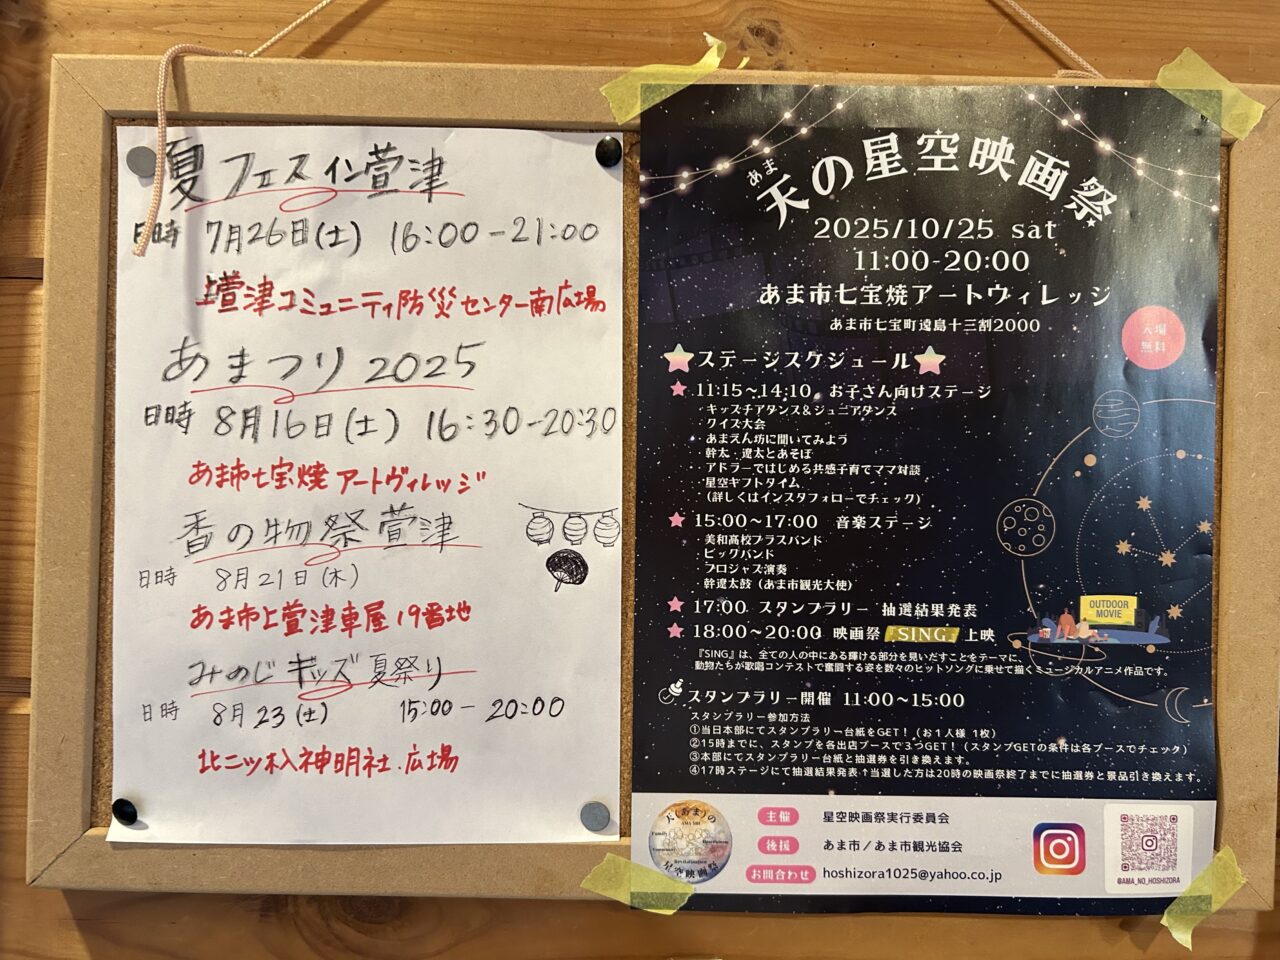 夏フェスイン萱津
日時 7月26日(土) 16:00-21:00
上萱津コミュニティ防災センター南広場
あまつり 2025
日時 8月16日(土) 16:30-20:30
あま市七宝焼アートヴィレッジ
香の物祭萱津
日時 8月21日(木)
あま市上萱津車屋19番地
みのじキッズ夏祭り
日時 8月23(土) 15:00-20:00
北二ツ杁神明社.広場
あま
天の星空映画祭
2025/10/25 sat
11:00-20:00
あま市七宝焼アートヴィレッジ
あま市七宝町遠島十三割2000
入場
無料
ステージスケジュール
11:15～14:10 お子さん向けステージ
・キッズチアダンス＆ジュニアダンス
・クイズ大会
・あまえん坊に聞いてみよう
・幹太・遼太とあそぼ
・アドラーではじめる共感子育てママ対談
・星空ギフトタイム
（詳しくはインスタフォローでチェック）
15:00～17:00 音楽ステージ
美和高校ブラスバンド
・ビッグバンド
・プロジャズ演奏
・幹遼太鼓（あま市観光大使）
17:00 スタンプラリー 抽選結果発表
18:00～20:00 映画祭『SING』上映
OUTDOOR
MOVIE
『SING』は、全ての人の中にある輝ける部分を見いだすことをテーマに、
動物たちが歌唱コンテストで奮闘する姿を数々のヒットソングに乗せて描くミュージカルアニメ作品です。
スタンプラリー開催 11:00～15:00
スタンプラリー参加方法
①当日本部にてスタンプラリー台紙をGET！（お1人様 1枚）
②15時までに、スタンプを各出店ブースで3つGET！（スタンプGETの条件は各ブースでチェック）
③本部にてスタンプラリー台紙と抽選券を引き換えます。
④17時ステージにて抽選結果発表↑当選した方は20時の映画祭終了までに抽選券と景品引き換えます。
天(あま)の
AMA SHI
Family
Revitalization
星空映画祭
主催 星空映画祭実行委員会
後援 あま市／あま市観光協会
お問合わせ hoshizora1025@yahoo.co.jp
@AMA_NO_HOSHIZORA